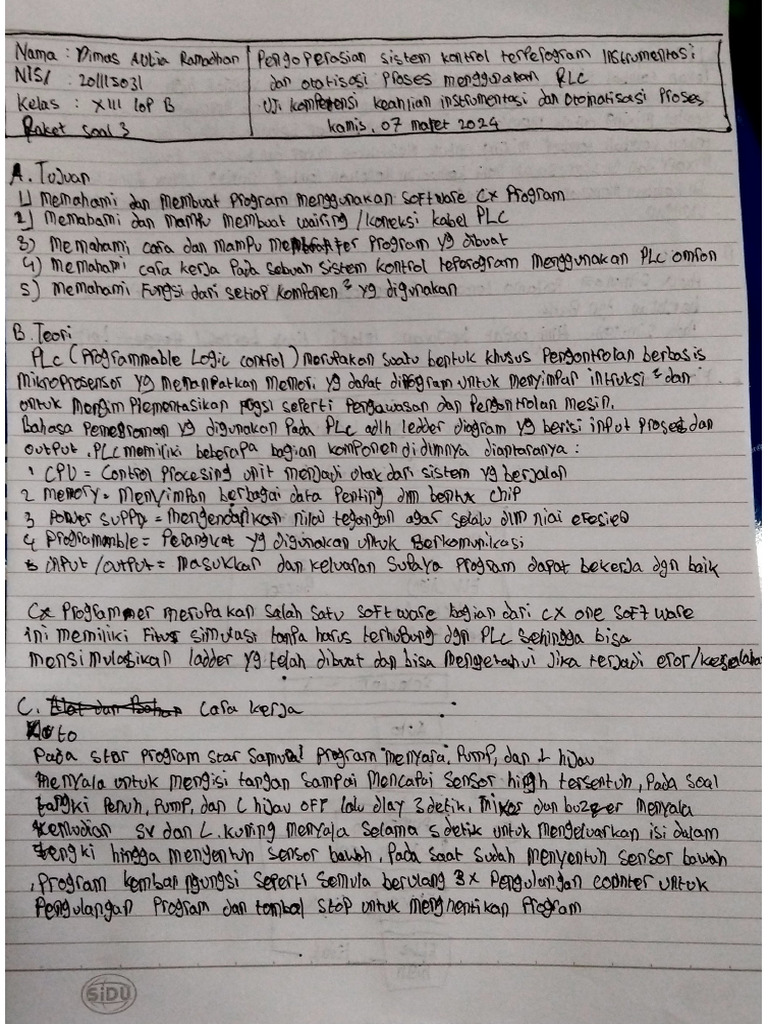 Nama : Dimas Aulia Ramadhan
NIS : 201115031
Kelas : XIII IOP B
Paket Soal 3
Pengoperasian sistem kontrol terperogram Instrumentasi
dan otatisasi Proses menggunakan PLC
Uji kompetensi keahlian instrumentasi dan Otomatisasi Proses
kamis, 07 maret 2024
A. Tujuan
1) memahami dan membuat Program menggunakan Software Cx Program
2) Memahami dan mampu membuat wairing / koneksi kabel PLC
3) Memahami cara dan mampu Program yg dibuat
4) Memahami cara kerja Pada sebuah sistem kontrol teporogram menggunakan PLC omron
5) Memahami Fungsi dari setiap komponen ² yg digunakan
B. Teori
PLc (Programmable Logic control) merupakan suatu bentuk khusus Pengontrolan berbasis
mikroprosensor yg memanpatkan memori yg dapat diprogram untuk menyimpan intruksi ² dan
untuk mengimplementasikan fugsi seperti Pengawasan dan Pengontrolan mesin.
Bahasa Pemegroman yg digunakan Pada PLC adlh ledder diagram yg berisi input proses dan
output. PLC memiliki beberapa bagian komponen didlmnya diantaranya :
1 CPU = Control Procesing unit menjadi otak dari sistem yg berjalan
2 memory = Menyimpan berbagai data Penting dlm bentuk chip
3 Power supply = mengendalikan nilai tegangan agar selalu dlm niai efesien
4 Programanble = Perangkat yg digunakan untuk Berkomunikasi
5 input / output = Masukkan dan keluaran Supaya Program dapat bekerja dgn baik
Cx Programmer merupakan salah satu software bagian dari cx one software
ini memiliki Fitur simulasi tanpa harus terhubung dgn PLC sehingga bisa
mensimulasikan ladder yg telah dibuat dan bisa mengetahui Jika terjadi eror/kesalahan
C. Alat dan Bahan Cara kerja
Auto
Pada star Program star Samua Program menyara, Pump, dan L hijau
menyala untuk mengisi tangan sampai mencapai sensor high tersentuh, Pada soal
tangki Penuh, Pump, dan L hijau OFF lalu dlay 3 detik, mixer dan buzzer menyala
kemudian SV dan L. kuning menyala selama 5 detik untuk mengeluarkan isi dalam
tengki hingga menyentuh sensor bawah, Pada saat sudah menyentuh sensor bawah
, Program kembar ngungsi seperti semula berulang 3x Pengulangan counter untuk
Pengulangan Program dan tombal stop untuk menghentikan Program
SiDU